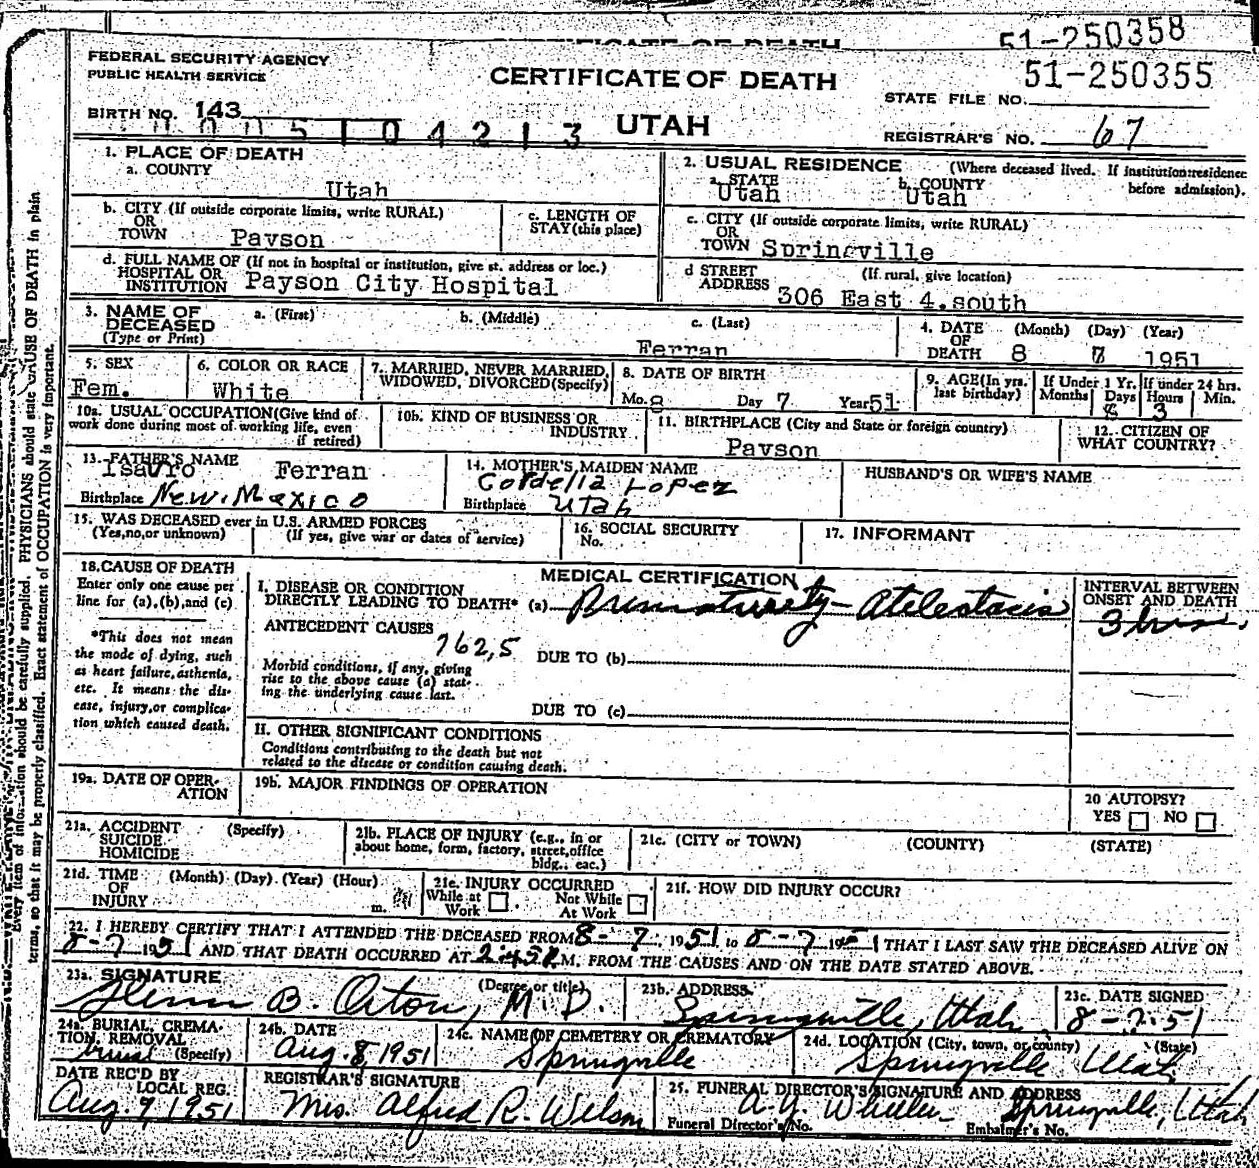 CERTIFICATE OF DEATH
51-250358
FEDERAL SECURITY AGENCY
PUBLIC HEALTH SERVICE
CERTIFICATE OF DEATH
51-250355
STATE FILE NO.
BIRTH NO. 143
UTAH
REGISTRAR'S NO. 67
1. PLACE OF DEATH
a. COUNTY
Utah
2. USUAL RESIDENCE (Where deceased lived. If institution:residence before admission).
a. STATE
Utah
b. COUNTY
Utah
b. CITY (If outside corporate limits, write RURAL)
OR
TOWN Payson
c. LENGTH OF
STAY (this place)
c. CITY (If outside corporate limits, write RURAL)
OR
TOWN Springville
d. FULL NAME OF (If not in hospital or institution, give st. address or loc.)
HOSPITAL OR
INSTITUTION Payson City Hospital
d STREET (If rural, give location)
ADDRESS 306 East 4.south
3. NAME OF
DECEASED
(Type or Print)
a. (First)
b. (Middle)
c. (Last)
Ferran
4. DATE (Month) (Day) (Year)
OF
DEATH 8 7 1951
5. SEX
Fem.
6. COLOR OR RACE
White
7. MARRIED, NEVER MARRIED,
WIDOWED, DIVORCED(Specify)
8. DATE OF BIRTH
Mo. 8 Day 7 Year 51
9. AGE(In yrs.
last birthday)
If Under 1 Yr.
Months Days
If under 24 hrs.
Hours Min.
3
10a. USUAL OCCUPATION(Give kind of
work done during most of working life, even
if retired)
10b. KIND OF BUSINESS OR
INDUSTRY
11. BIRTHPLACE (City and State or foreign country)
Payson
12. CITIZEN OF
WHAT COUNTRY?
13. FATHER'S NAME
Isauro Ferran
Birthplace New Mexico
14. MOTHER'S MAIDEN NAME
Cordelia Lopez
Birthplace Utah
HUSBAND'S OR WIFE'S NAME
15. WAS DECEASED ever in U.S. ARMED FORCES
(Yes,no,or unknown) (If yes, give war or dates of service)
16. SOCIAL SECURITY
No.
17. INFORMANT
18. CAUSE OF DEATH
Enter only one cause per
line for (a),(b),and (c)
*This does not mean
the mode of dying, such
as heart failure,asthenia,
etc. It means the dis-
ease, injury,or complica-
tion which caused death.
MEDICAL CERTIFICATION
I. DISEASE OR CONDITION
DIRECTLY LEADING TO DEATH* (a) Prematurity - Atelectasis
INTERVAL BETWEEN
ONSET AND DEATH
3 hrs.
ANTECEDENT CAUSES
762,5
DUE TO (b)
Morbid conditions, if any, giving
rise to the above cause (a) stat-
ing the underlying cause last.
DUE TO (c)
II. OTHER SIGNIFICANT CONDITIONS
Conditions contributing to the death but not
related to the disease or condition causing death.
19a. DATE OF OPER-
ATION
19b. MAJOR FINDINGS OF OPERATION
20 AUTOPSY?
YES NO
21a. ACCIDENT (Specify)
SUICIDE
HOMICIDE
21b. PLACE OF INJURY (e.g., in or
about home, form, factory, street,office
bldg., eac.)
21c. (CITY or TOWN) (COUNTY) (STATE)
21d. TIME (Month) (Day) (Year) (Hour)
OF
INJURY m.
21e. INJURY OCCURRED
While at Work Not While At Work
21f. HOW DID INJURY OCCUR?
22. I HEREBY CERTIFY THAT I ATTENDED THE DECEASED FROM 8-7, 1951 to 8-7, 195 1 THAT I LAST SAW THE DECEASED ALIVE ON
8-7 1951 AND THAT DEATH OCCURRED AT 2:45 P.M. FROM THE CAUSES AND ON THE DATE STATED ABOVE.
23a. SIGNATURE (Degree or title)
Glenn B. Orton, M.D.
23b. ADDRESS
Springville, Utah
23c. DATE SIGNED
8-7-51
24a. BURIAL, CREMA-
TION, REMOVAL
(Specify)
24b. DATE
Aug. 8, 1951
24c. NAME OF CEMETERY OR CREMATORY
Springville
24d. LOCATION (City, town, or county) (State)
Springville Utah
DATE REC'D BY
LOCAL REG.
Aug 9 1951
REGISTRAR'S SIGNATURE
Mrs. Alfred R. Wilson
25. FUNERAL DIRECTOR'S SIGNATURE AND ADDRESS
A.Y. Wheeler Springville, Utah
Funeral Director's No. Embalmer's No.
Every item of information should be carefully supplied. PHYSICIANS should state CAUSE OF DEATH in plain
terms, so that it may be properly classified. Exact statement of OCCUPATION is very important.